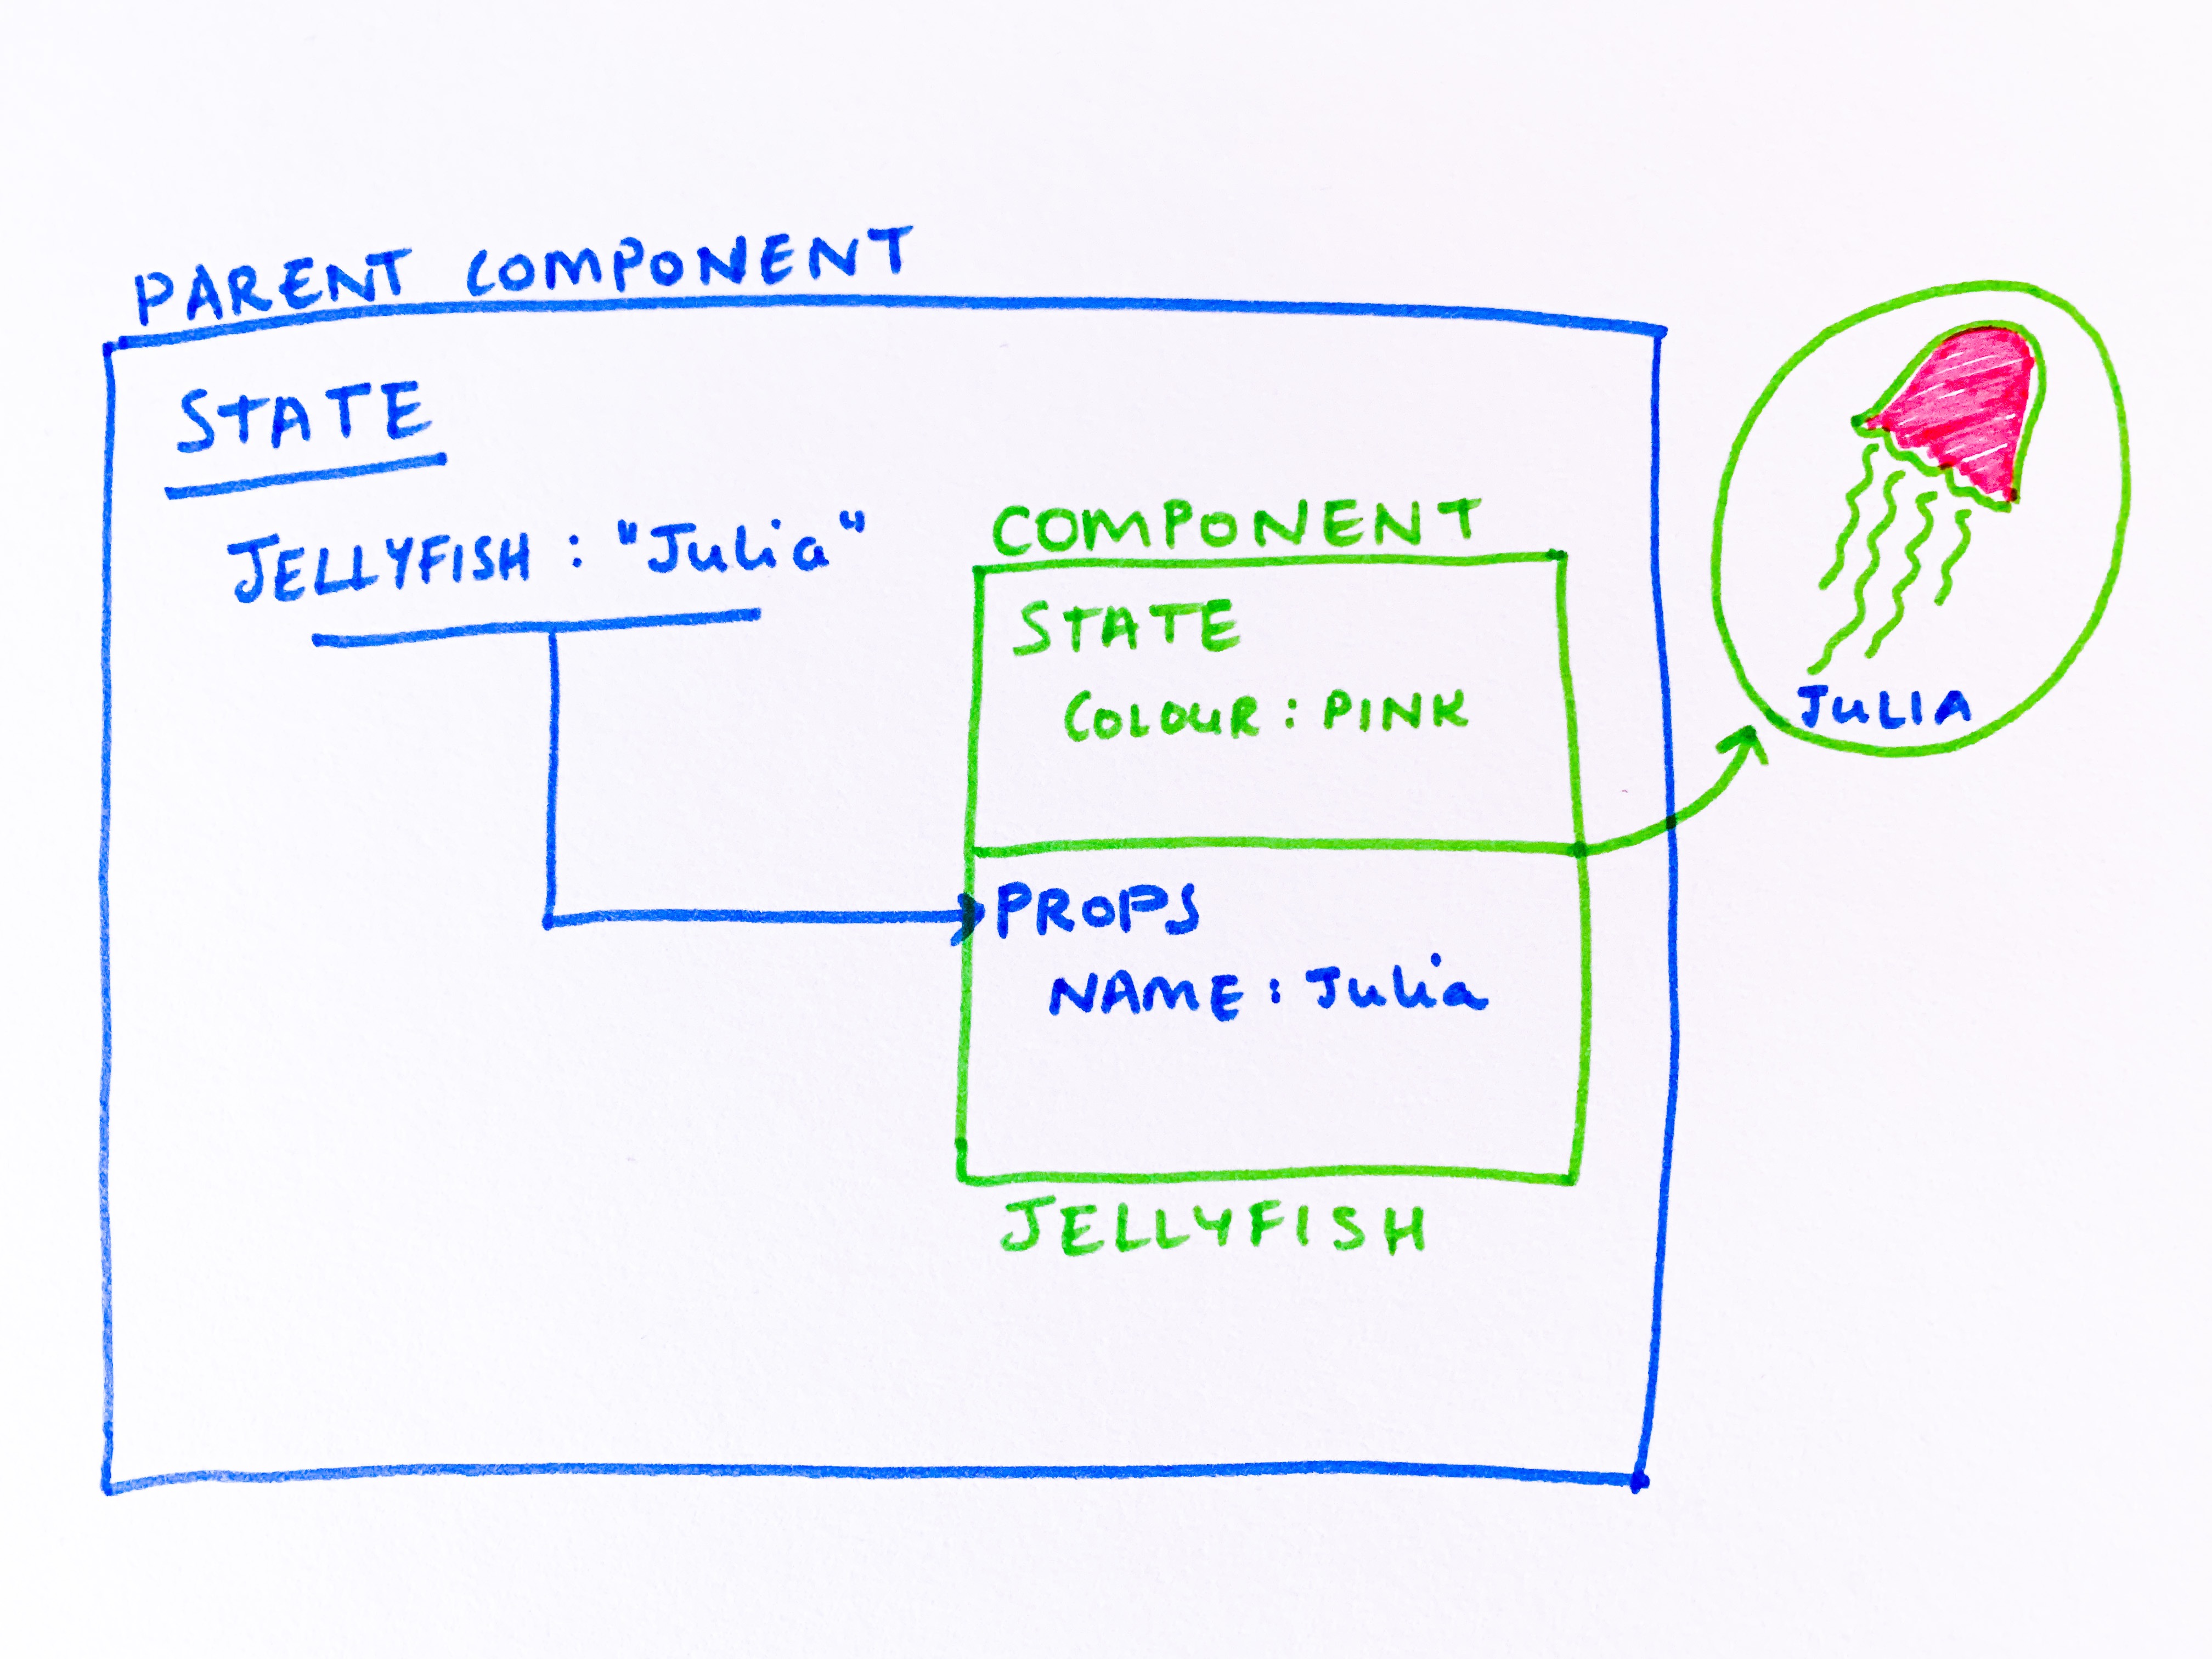 PARENT COMPONENT
STATE
JELLYFISH : "Julia"
COMPONENT
STATE
COLOUR : PINK
PROPS
NAME : Julia
JELLYFISH
JULIA